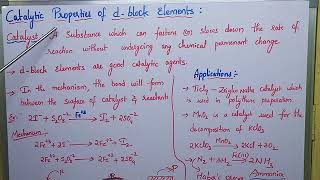 Catalytic Properties of d-block Elements :
Catalyst : Substance which can fastens (or) slows down the rate of
reaction without undergoing any chemical permanent change
→ d-block Elements are good catalytic agents.
→ In the mechanism, the bond will form
between the surface of catalyst & reactants
Ex: 2I⁻ + S₂O₈²⁻ → I₂ + 2SO₄²⁻
Mechanism :
Fe⁺³ + 2I⁻ → Fe⁺² + I₂
Fe⁺² + S₂O₈²⁻ → Fe⁺³ + 2SO₄²⁻
Applications :
→ TiCl₄ - Zeigler Natta catalyst which
is used in polythene preparation.
→ MnO₂ is a catalyst used for the
decomposition of KClO₃
2KClO₃ MnO₂→ 2KCl + 3O₂
→ N₂ + 3H₂ Fe→ 2NH₃
Ammonia
P
R